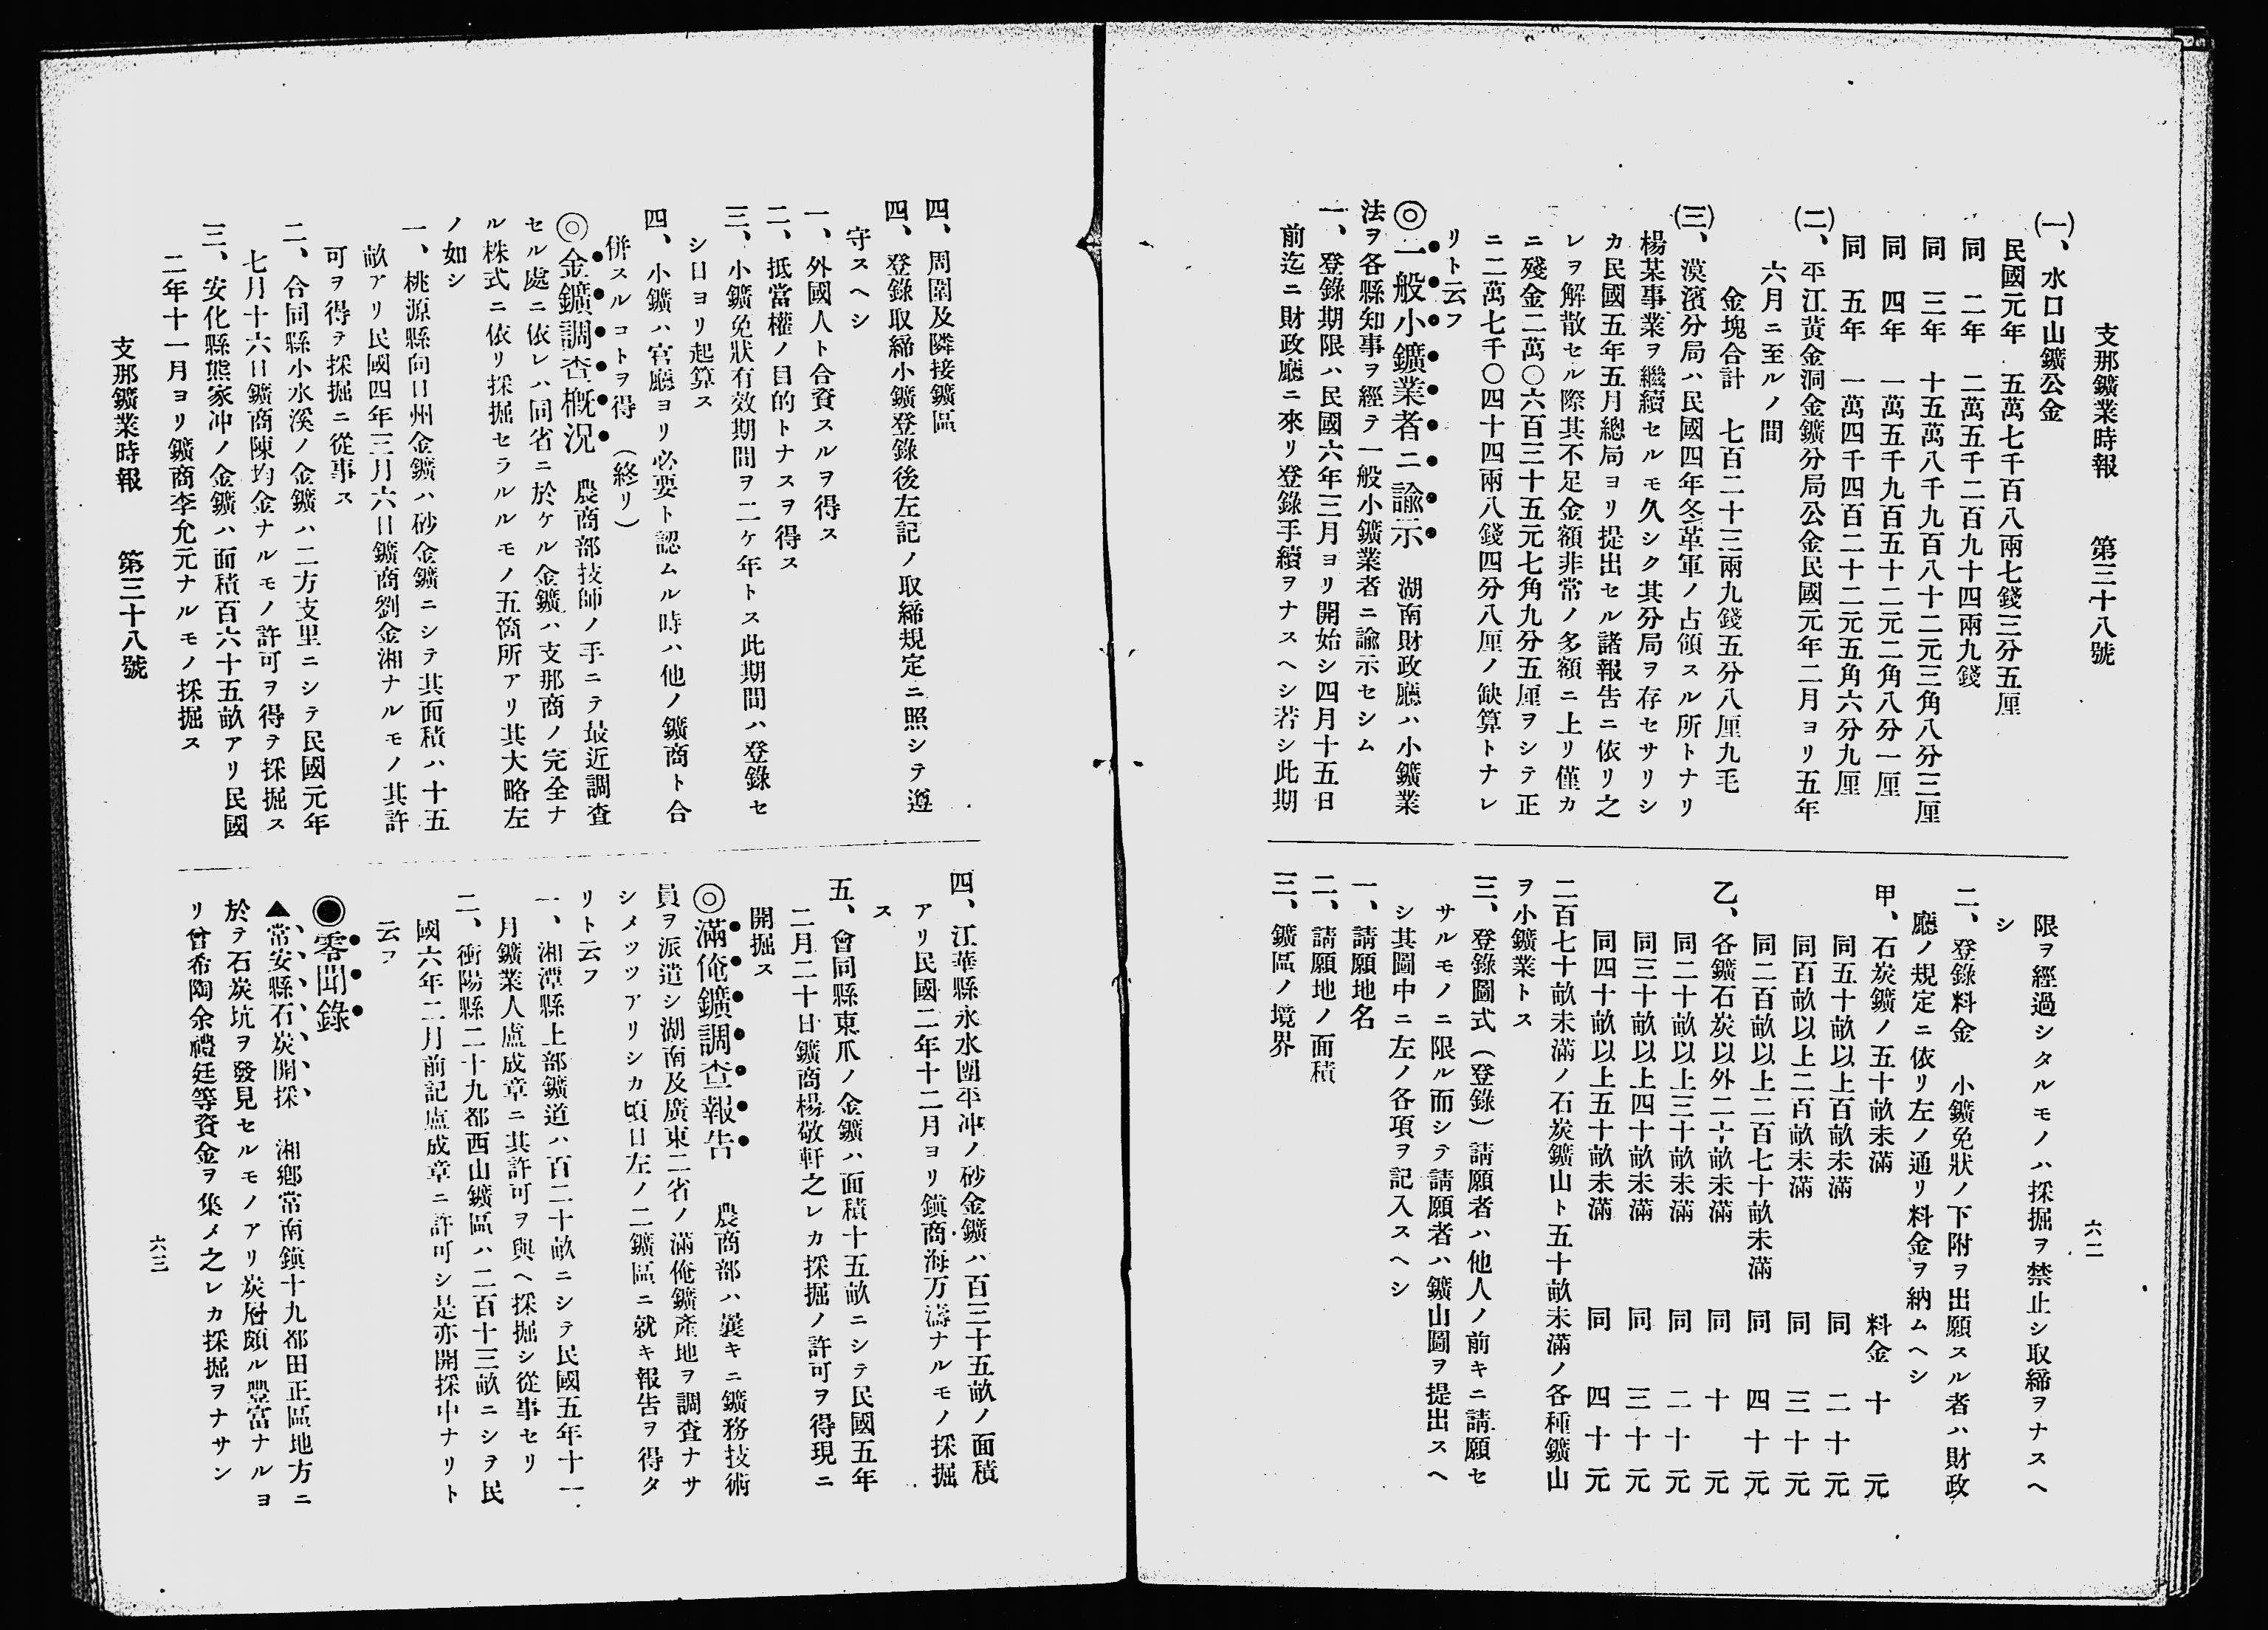 支那鑛業時報　第三十八號　六二
(一)、水口山鑛公金
民國元年　五萬七千百八兩七錢三分五厘
同　二年　二萬五千二百九十四兩九錢
同　三年　十五萬八千九百八十二元三角八分三厘
同　四年　一萬五千九百五十二元二角八分一厘
同　五年　一萬四千四百二十二元五角六分九厘
(二)、平江黃金洞金鑛分局公金民國元年二月ヨリ五年
六月ニ至ルノ間
金塊合計　七百二十三兩九錢五分八厘九毛
(三)、漢濱分局ハ民國四年冬革軍ノ占領スル所トナリ
楊某事業ヲ繼續セルモ久シク其分局ヲ存セサリシ
カ民國五年五月總局ヨリ提出セル諸報告ニ依リ之
レヲ解散セル際其不足金額非常ノ多額ニ上リ僅カ
ニ殘金二萬〇六百三十五元七角九分五厘ヲシテ正
ニ二萬七千〇四十四兩八錢四分八厘ノ缺算トナレ
リト云フ
◎一般小鑛業者ニ諭示　湖南財政廳ハ小鑛業
法ヲ各縣知事ヲ經テ一般小鑛業者ニ諭示セシム
一、登錄期限ハ民國六年三月ヨリ開始シ四月十五日
前迄ニ財政廳ニ來リ登錄手續ヲナスヘシ若シ此期
限ヲ經過シタルモノハ採掘ヲ禁止シ取締ヲナスヘ
シ
二、登錄料金　小鑛免狀ノ下附ヲ出願スル者ハ財政
廳ノ規定ニ依リ左ノ通リ料金ヲ納ムヘシ
甲、石炭鑛ノ五十畝未滿　料金　十元
同五十畝以上百畝未滿　同　二十元
同百畝以上二百畝未滿　同　三十元
同二百畝以上二百七十畝未滿　同　四十元
乙、各鑛石炭以外二十畝未滿　同　十元
同二十畝以上三十畝未滿　同　二十元
同三十畝以上四十畝未滿　同　三十元
同四十畝以上五十畝未滿　同　四十元
二百七十畝未滿ノ石炭鑛山ト五十畝未滿ノ各種鑛山
ヲ小鑛業トス
三、登錄圖式（登錄）請願者ハ他人ノ前キニ請願セ
サルモノニ限ル而シテ請願者ハ鑛山圖ヲ提出スヘ
シ其圖中ニ左ノ各項ヲ記入スヘシ
一、請願地名
二、請願地ノ面積
三、鑛區ノ境界
四、周圍及隣接鑛區
四、登錄取締小鑛登錄後左記ノ取締規定ニ照シテ遵
守スヘシ
一、外國人ト合資スルヲ得ス
二、抵當權ノ目的トナスヲ得ス
三、小鑛免狀有效期間ヲ二ケ年トス此期間ハ登錄セ
シ日ヨリ起算ス
四、小鑛ハ官廳ヨリ必要ト認ムル時ハ他ノ鑛商ト合
併スルコトヲ得（終リ）
◎金鑛調査概況　農商部技師ノ手ニテ最近調査
セル處ニ依レハ同省ニ於ケル金鑛ハ支那商ノ完全ナ
ル株式ニ依リ採掘セラルルモノ五箇所アリ其大略左
ノ如シ
一、桃源縣向日州金鑛ハ砂金鑛ニシテ其面積ハ十五
畝アリ民國四年三月六日鑛商劉金湘ナルモノ其許
可ヲ得テ採掘ニ從事ス
二、合同縣小水溪ノ金鑛ハ二方支里ニシテ民國元年
七月十六日鑛商陳均金ナルモノ許可ヲ得テ採掘ス
三、安化縣熊家冲ノ金鑛ハ面積百六十五畝アリ民國
二年十一月ヨリ鑛商李允元ナルモノ採掘ス
四、江華縣永水團平冲ノ砂金鑛ハ百三十五畝ノ面積
アリ民國二年十二月ヨリ鎭商海万濤ナルモノ採掘
ス
五、會同縣東爪ノ金鑛ハ面積十五畝ニシテ民國五年
二月二十日鑛商楊敬軒之レカ採掘ノ許可ヲ得現ニ
開掘ス
◎滿俺鑛調査報告　農商部ハ曩キニ鑛務技術
員ヲ派遣シ湖南及廣東二省ノ滿俺鑛產地ヲ調査ナサ
シメツツアリシカ頃日左ノ二鑛區ニ就キ報告ヲ得タ
リト云フ
一、湘潭縣上部鑛道ハ百二十畝ニシテ民國五年十一
月鑛業人盧成章ニ其許可ヲ與ヘ採掘シ從事セリ
二、衡陽縣二十九都西山鑛區ハ二百十三畝ニシヲ民
國六年二月前記盧成章ニ許可シ是亦開採中ナリト
云フ
◉零聞錄
▲常安縣石炭開採　湘鄉常南鎭十九都田正區地方ニ
於テ石炭坑ヲ發見セルモノアリ炭層頗ル豐富ナルヨ
リ曾希陶余禮廷等資金ヲ集メ之レカ採掘ヲナサン
支那鑛業時報　第三十八號　六三